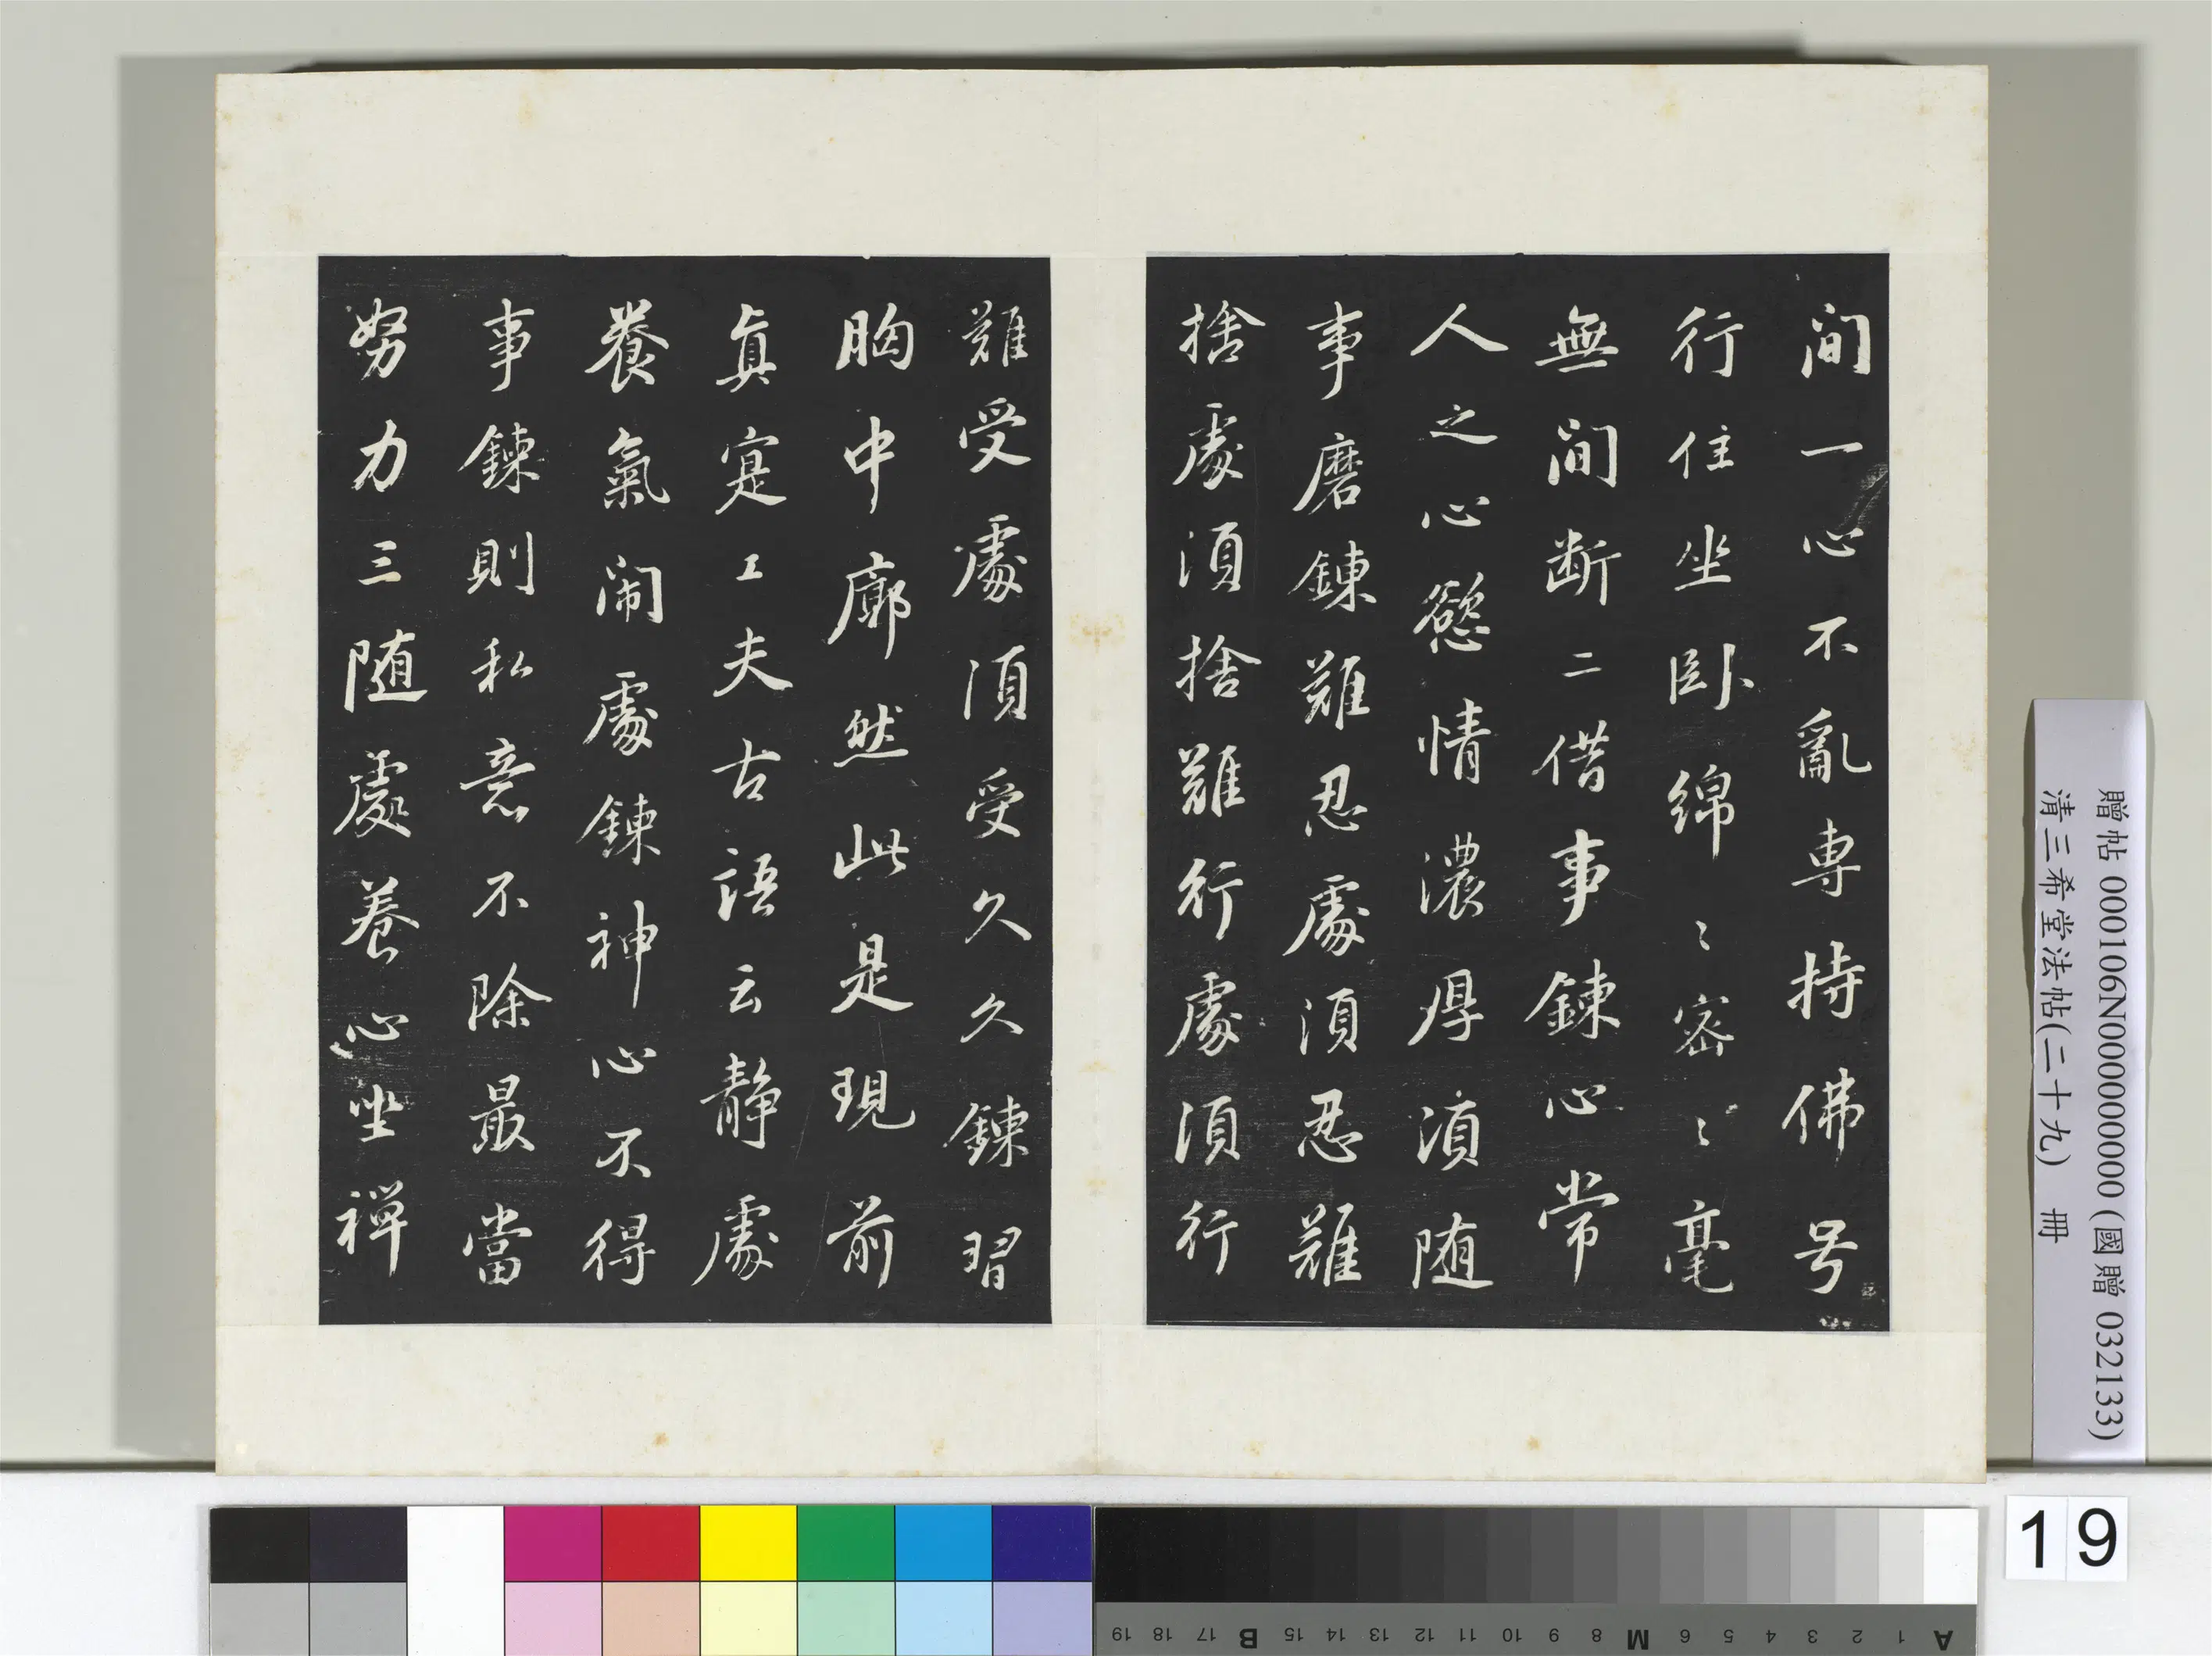 间一心不亂專持佛号
行住坐卧綿〻密〻毫
無间断二借事鍊心常
人之心慾情濃厚湏随
事磨鍊難忍處湏忍難
捨處湏捨難行處湏行
難受處湏受久久鍊習
胸中廓然此是現前
真寔工夫古語云静處
養氣闹處鍊神心不得
事鍊則私意不除最當
努力三随處養心坐禅
贈帖 000106N000000000 (國贈 032133)
清三希堂法帖(二十九) 冊
19
A 1 2 3 4 5 6 M 8 9 10 11 12 13 14 15 B 17 18 19